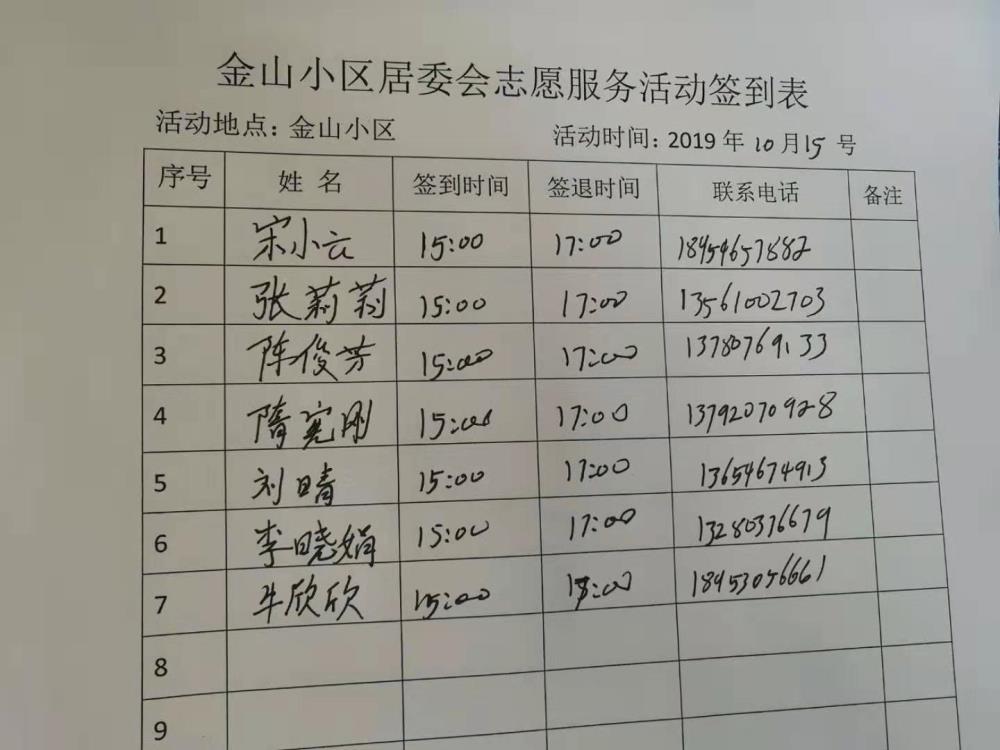 金山小区居委会志愿服务活动签到表
活动地点: 金山小区 活动时间: 2019 年 10 月 15 号
序号 姓 名 签到时间 签退时间 联系电话 备注
1 宋小云 15:00 17:00 18454657882
2 张莉莉 15:00 17:00 13561002703
3 陈俊芳 15:00 17:00 13780769133
4 隋宪刚 15:00 17:00 13792070928
5 刘晴 15:00 17:00 13654674913
6 李晓娟 15:00 17:00 13280376679
7 牛欣欣 15:00 18453056661
8
9